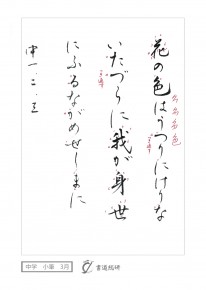 花の色はうつりにけりな
いたづらに我が身世
にふるながめせしまに
中一・二・三
中学　小筆　3月
書道総研